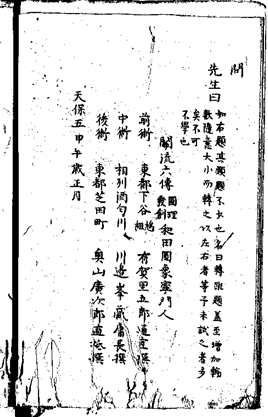 問
先生曰
如右題其類題不少也名曰轉距題蓋至增加轉
數隨意大小而轉之以左右者等予未試之者多
矣不可
不學也
關流六傳圓理發創和田圓象寧門人
前術 東都下谷 有賀里五郎道宣撰
中術 相刕酒匂川 川邊峯藏庸長撰
後術 東都芝田町 奥山廣次郎直祗撰
天保五甲午歲正月